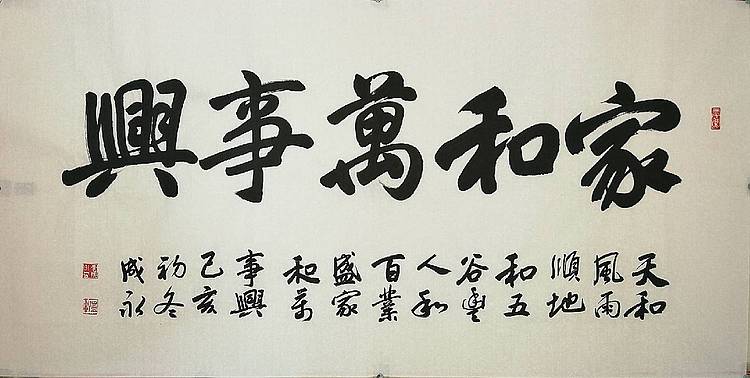 家和萬事興
天和
風雨
順地
和五
谷豐
人和
百業
盛家
和萬
事興
己亥
初冬
成永